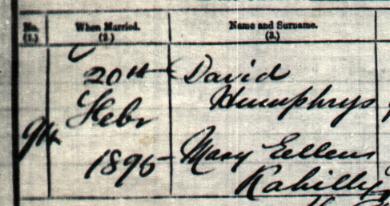 No. When Married. Name and Surname.
(1.) (2.) (3.)
20th David
Febr Humphrys
94
1895 Mary Eellens
Rahilly